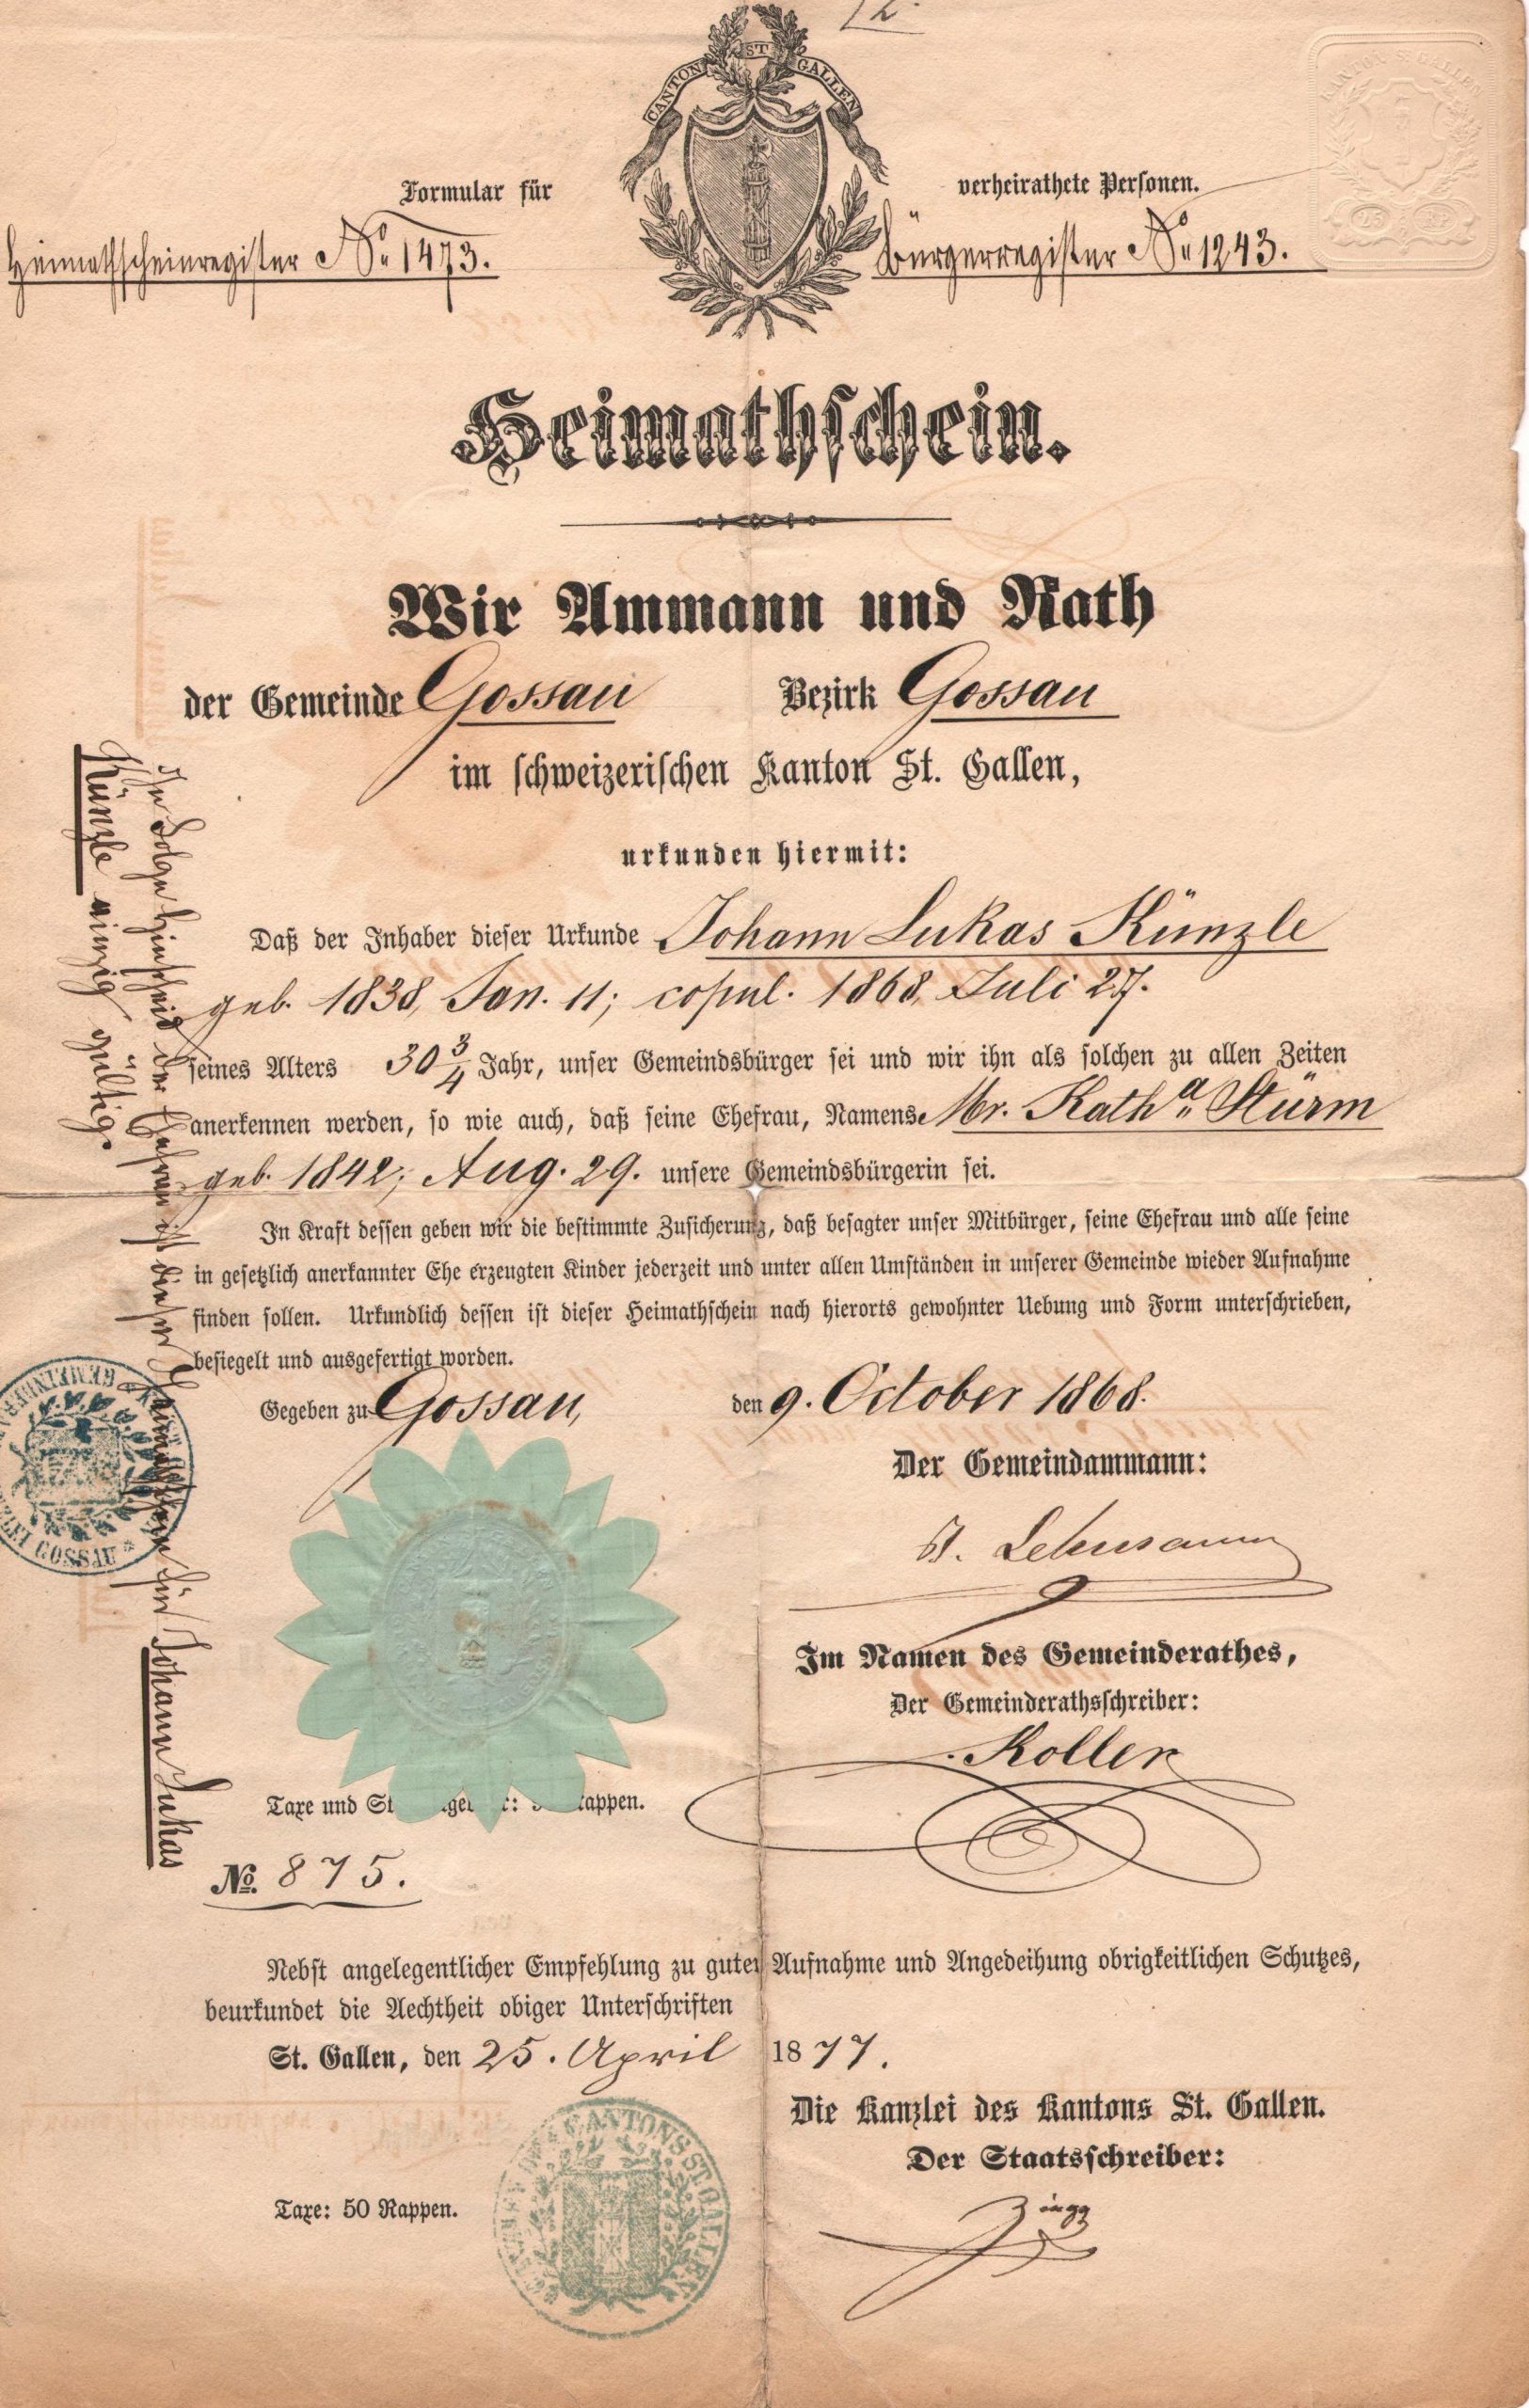 CANTON ST GALLEN
CANTON ST. GALLEN
Formular für verheirathete Personen.
Heimathscheinregister No 1473. Bürgerregister No 1243.
Heimathschein.
Wir Ammann und Rath
der Gemeinde Gossau Bezirk Gossau
im schweizerischen Kanton St. Gallen,
urkunden hiermit:
Daß der Inhaber dieser Urkunde Johann Lukas Künzle
geb. 1838, Jan. 11; copul. 1868, Juli 27.
seines Alters 30 3/4 Jahr, unser Gemeindsbürger sei und wir ihn als solchen zu allen Zeiten
anerkennen werden, so wie auch, daß seine Ehefrau, Namens Mr. Kath.a Stürm
geb. 1842, Aug. 29. unsere Gemeindsbürgerin sei.
In Kraft dessen geben wir die bestimmte Zusicherung, daß besagter unser Mitbürger, seine Ehefrau und alle seine
in gesetzlich anerkannter Ehe erzeugten Kinder jederzeit und unter allen Umständen in unserer Gemeinde wieder Aufnahme
finden sollen. Urkundlich dessen ist dieser Heimathschein nach hierorts gewohnter Uebung und Form unterschrieben,
besiegelt und ausgefertigt worden.
Gegeben zu Gossau, den 9. October 1868.
Der Gemeindammann:
Im Namen des Gemeinderathes,
Der Gemeinderathsschreiber:
Koller
Taxe und
No. 875.
Nebst angelegentlicher Empfehlung zu guter Aufnahme und Angedeihung obrigkeitlichen Schutzes,
beurkundet die Aechtheit obiger Unterschriften
St. Gallen, den 25. April 1877.
Die Kanzlei des Kantons St. Gallen.
Der Staatsschreiber:
Zingg
Taxe: 50 Rappen.
KANTONS ST. GALLEN
In Folge Hinscheid der Ehefrau ist dieser Heimathschein für Johann Lukas
Künzle einzig gültig.
GOSSAU